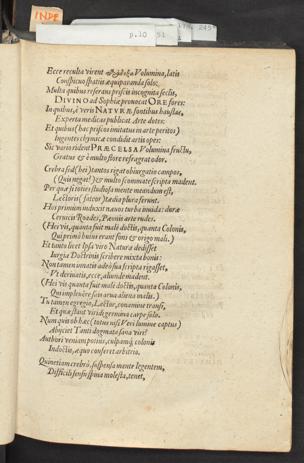 INDE
p.10 51
245
Ecce reculta virent Volumina, latis
Conspicuo spatiis æquiparanda solo:
Multa quibus reserans priscis incognita seclis,
DIVINO ad Sophiæ provocat ORE fores:
In quibus, è veris NATVRÆ fontibus haustæ,
Experta medicas publicat Arte dotes:
Et quibus (hac priscos imitatus in arte peritos)
Ingentes chymicæ condidit artis opes:
Sic vario rident PRÆCELSA Volumina fructu,
Gratus & è multo flore refragrat odor.
Crebra sed (hei) tantos rigat obiurgatio campos,
(Quis neget?) & multo scommate scripta madent.
Per quæ si toties studiosa mente meandum est,
Lectori (fateor) tædia plura ferunt.
Hei primum induxit nævos turba invida: duræ
Cerucis Rordes, Pæoniis arte rudes.
(Hei vis, quanta fuit mali doctis, quanta Colonis,
Qui primò huius erant fons & origo mali.)
Et tantò licet Ipsa viro Natura dedisset
Iurgia Doctrinis scribere mixta bonis:
Non tamen innatis adeò sua scripta rigasset,
Vt derivatis, ecce, aliunde madent.
(Hei vis quanta fuit malè doctis, quanta Colonis,
Qui implevêre satis arua aliena malis.)
Tu tamen egregio, Lector, conamine transi,
Et quæ stant viridi germina carpe solo.
Num quis ob hæc (totus nisi Veri lumine captus)
Abijciet Tanti dogmata sana viri?
Authori veniam potius, culpamq; colonis
Indoctis, æquo confer et arbitrio.
Quin etiam crebrò, suspensa mente legentem,
Difficili sensu spina molesta, tenet,